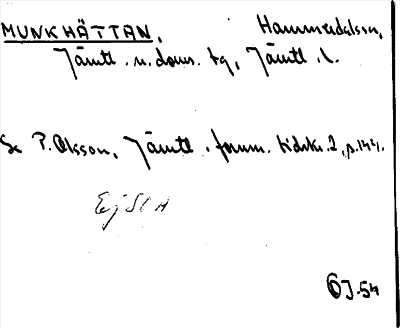 MUNKHÄTTAN, Hammerdalssn,
Jämtl. n. doms. tg, Jämtl. l.
Se P. Olsson, Jämtl. fornm. tidskr. 2, p. 144.
Ej SLA
OJ-54